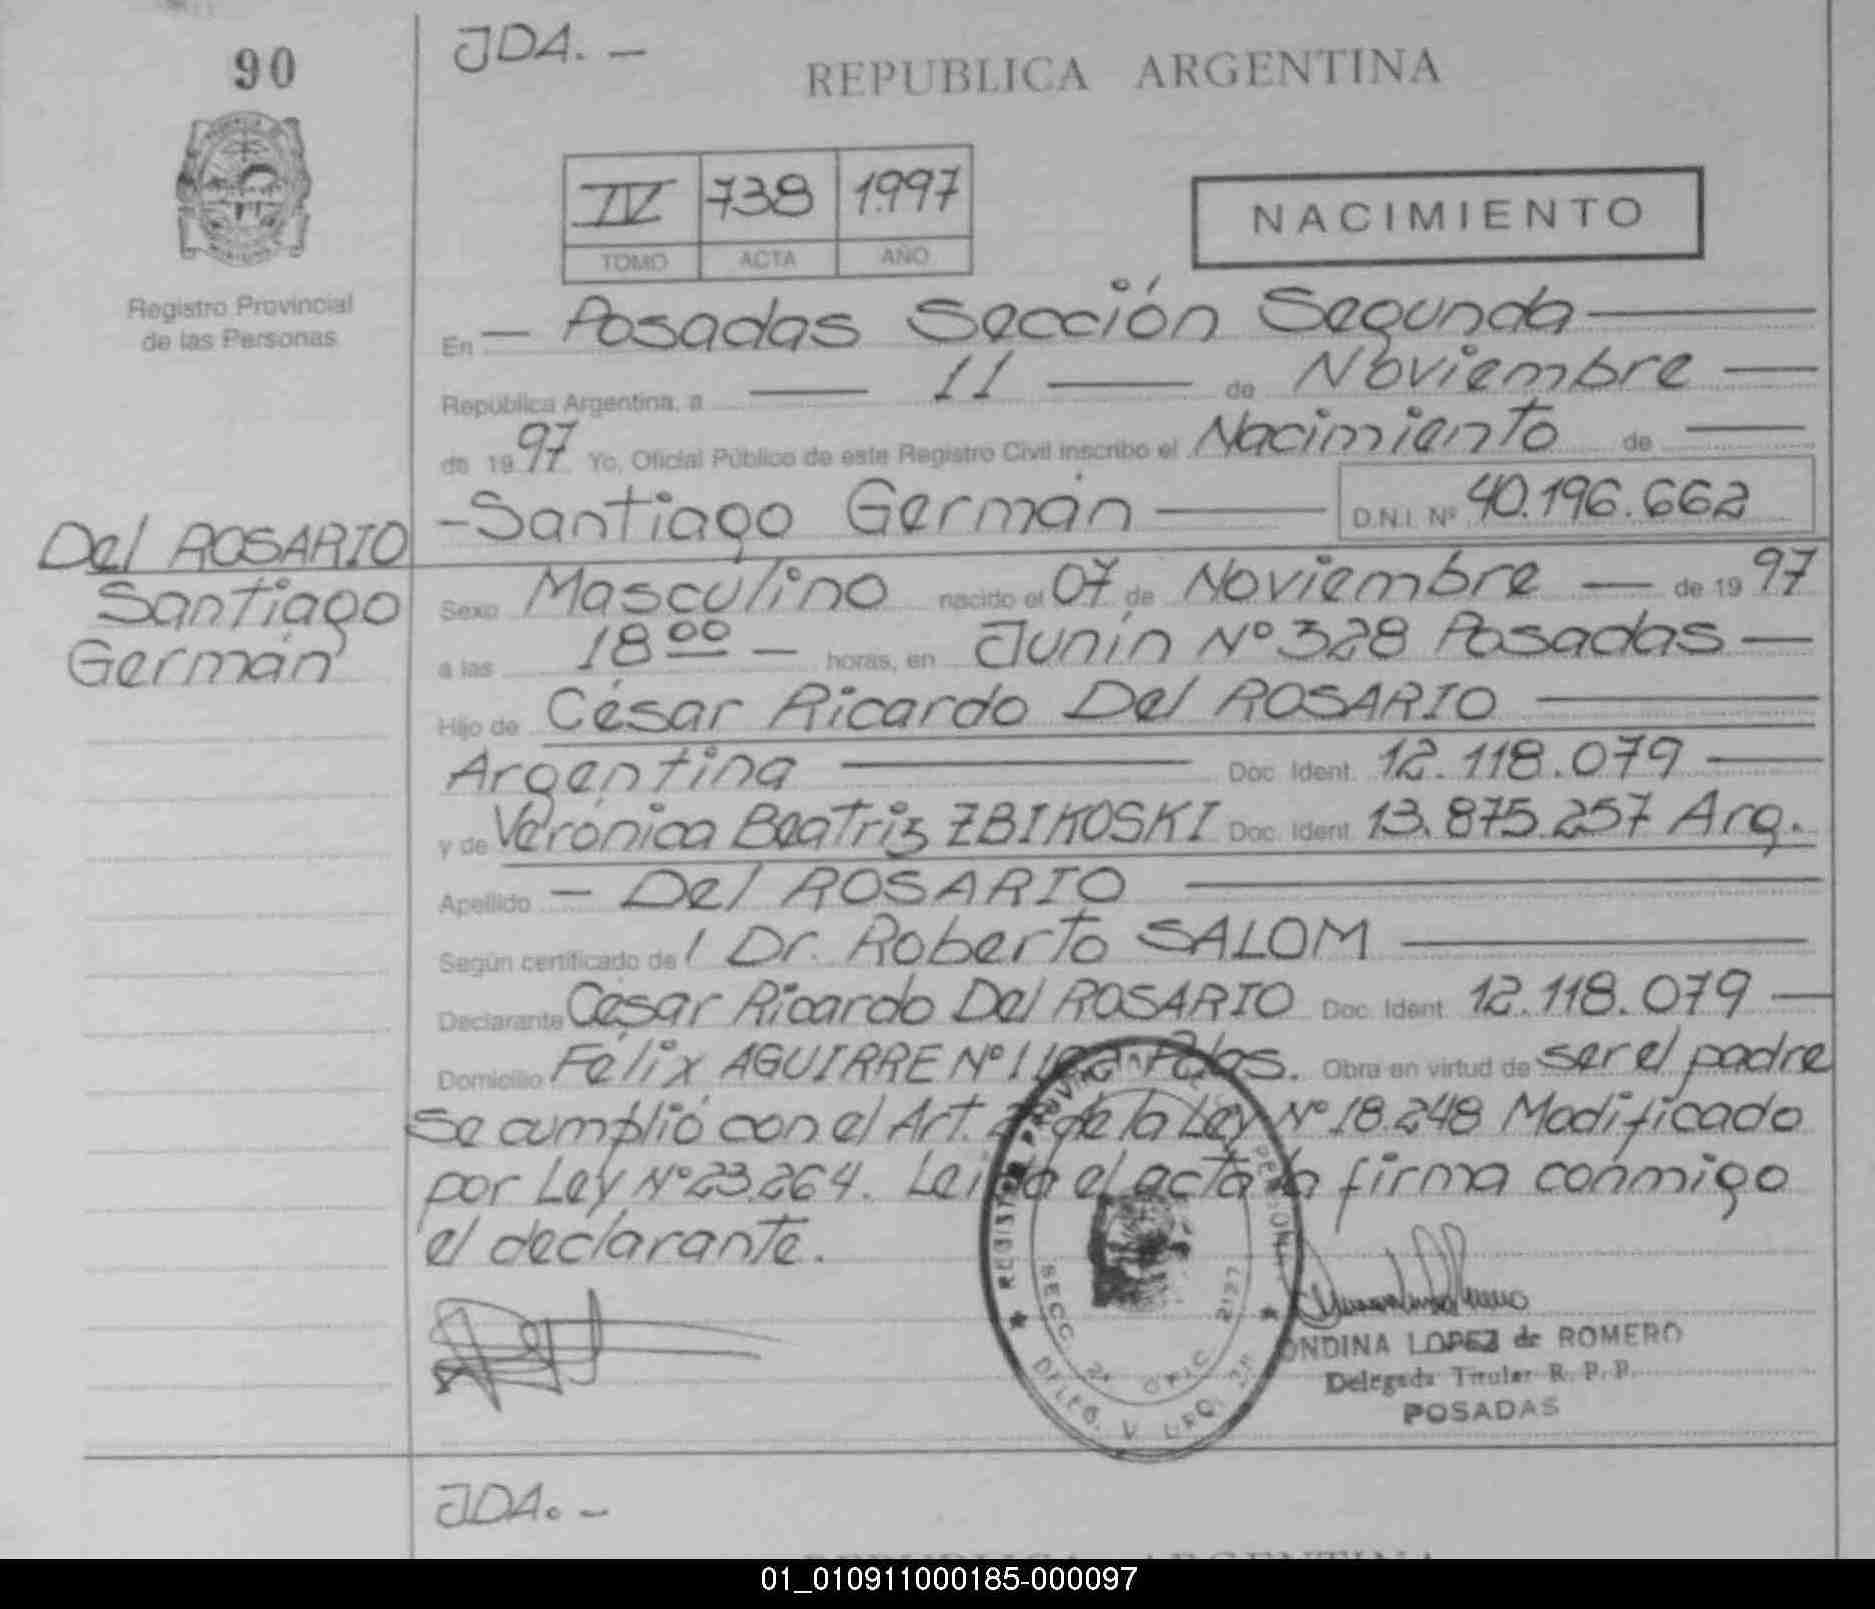 90
JDA. —
REPUBLICA ARGENTINA
IV 738 1.997
TOMO ACTA AÑO
NACIMIENTO
Registro Provincial
de las Personas
En — Posadas Sección Segunda —
República Argentina, a — 11 — de Noviembre —
de 1997 Yo, Oficial Público de este Registro Civil inscribo el Nacimiento de —
— Santiago Germán — D.N.I. Nº 40.196.662
Del ROSARIO
Santiago
Germán
Sexo Masculino nacido el 07 de Noviembre — de 1997
a las 18 00 — horas, en Junín Nº 328 Posadas —
Hijo de César Ricardo Del ROSARIO —
Argentina — Doc. Ident. 12.118.079 —
y de Verónica Beatriz ZBIKOSKI Doc. Ident. 13.875.257 Arg.
Apellido — Del ROSARIO —
Según certificado de l Dr. Roberto SALOM —
Declarante César Ricardo Del ROSARIO Doc. Ident. 12.118.079 —
Domicilio Félix AGUIRRE Nº Pdas. Obra en virtud de ser el padre
Se cumplió con el Art. de la Ley Nº 18.248 Modificado
por Ley Nº 23.264. Leida el acta la firma conmigo
el declarante.
REGISTRO PROVINCIAL DE LAS PERSONAS
SECC. 2ª OFIC. 2127
DELEG. V URQ.
ONDINA LOPEZ de ROMERO
Delegada Titular R. P. P.
POSADAS
JDA. —
REPUBLICA ARGENTINA
01_010911000185-000097